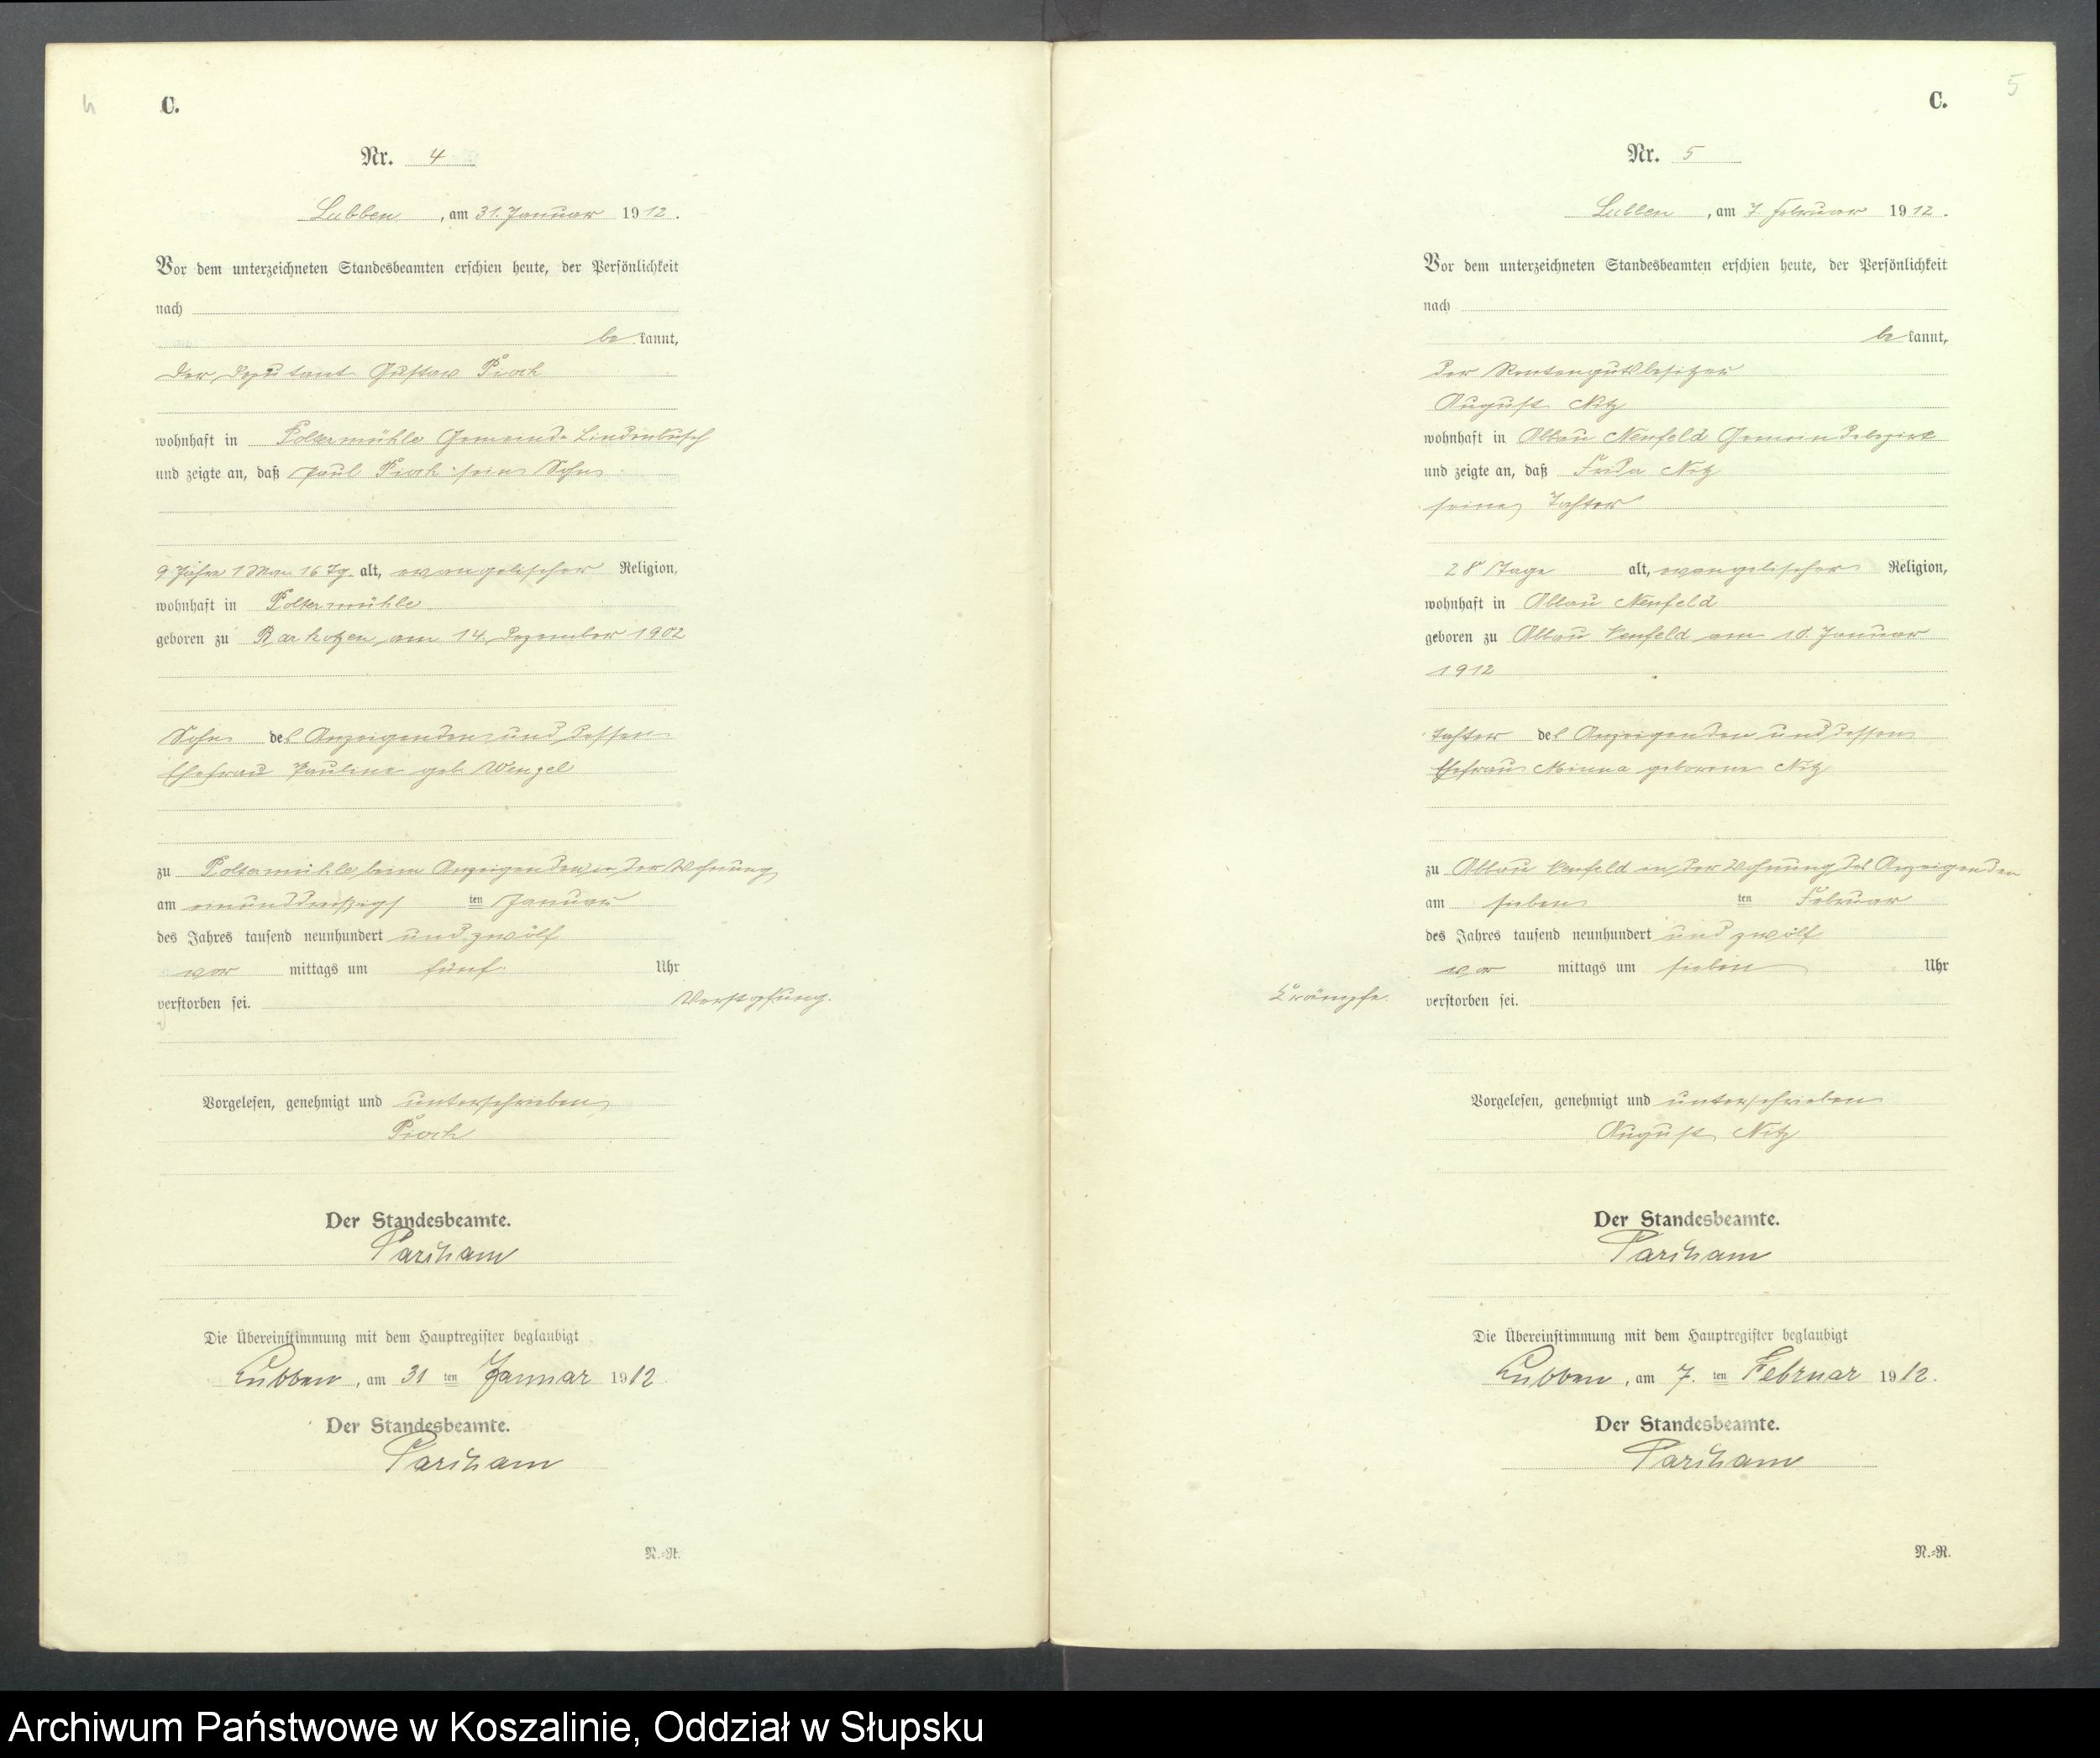 4
C.
Nr. 4
Lubben, am 31. Januar 1912.
Vor dem unterzeichneten Standesbeamten erschien heute, der Persönlichkeit
nach
bekannt,
der Deputant Gustav Pioch
wohnhaft in Poltermühle Gemeinde Lindenbusch
und zeigte an, daß Paul Pioch sein Sohn
9 Jahre 1 Mon. 16 Tg. alt, evangelischer Religion,
wohnhaft in Poltermühle
geboren zu Barkotzen am 14. Dezember 1902
Sohn des Anzeigenden und dessen
Ehefrau Pauline geb. Wenzel
zu Poltermühle beim Anzeigenden in der Wohnung
am einunddreißigsten Januar
des Jahres tausend neunhundert und zwölf
vor mittags um fünf Uhr
verstorben sei. Verstopfung.
Vorgelesen, genehmigt und unterschrieben
Pioch
Der Standesbeamte.
Die Übereinstimmung mit dem Hauptregister beglaubigt
Lubben, am 31 ten Januar 1912
Der Standesbeamte.
N.=R.
5
C.
Nr. 5
Lubben, am 7. Februar 1912.
Vor dem unterzeichneten Standesbeamten erschien heute, der Persönlichkeit
nach
bekannt,
der Rentengutsbesitzer
August Nitz
wohnhaft in Abbau Neufeld Gemeindebezirk
und zeigte an, daß Frida Nitz
seine Tochter
28 Tage alt, evangelischer Religion,
wohnhaft in Abbau Neufeld
geboren zu Abbau Neufeld am 10. Januar
1912
Tochter des Anzeigenden und dessen
Ehefrau Minna geborene Nitz
zu Abbau Neufeld in der Wohnung des Anzeigenden
am sieben ten Februar
des Jahres tausend neunhundert und zwölf
vor mittags um sieben Uhr
Krämpfe. verstorben sei.
Vorgelesen, genehmigt und unterschrieben
August Nitz
Der Standesbeamte.
Die Übereinstimmung mit dem Hauptregister beglaubigt
Lubben, am 7. ten Februar 1912.
Der Standesbeamte.
N.=R.
Archiwum Państwowe w Koszalinie, Oddział w Słupsku